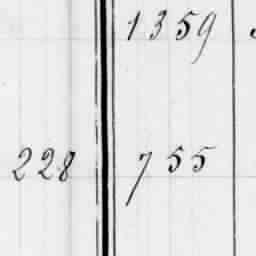 1359
228 755